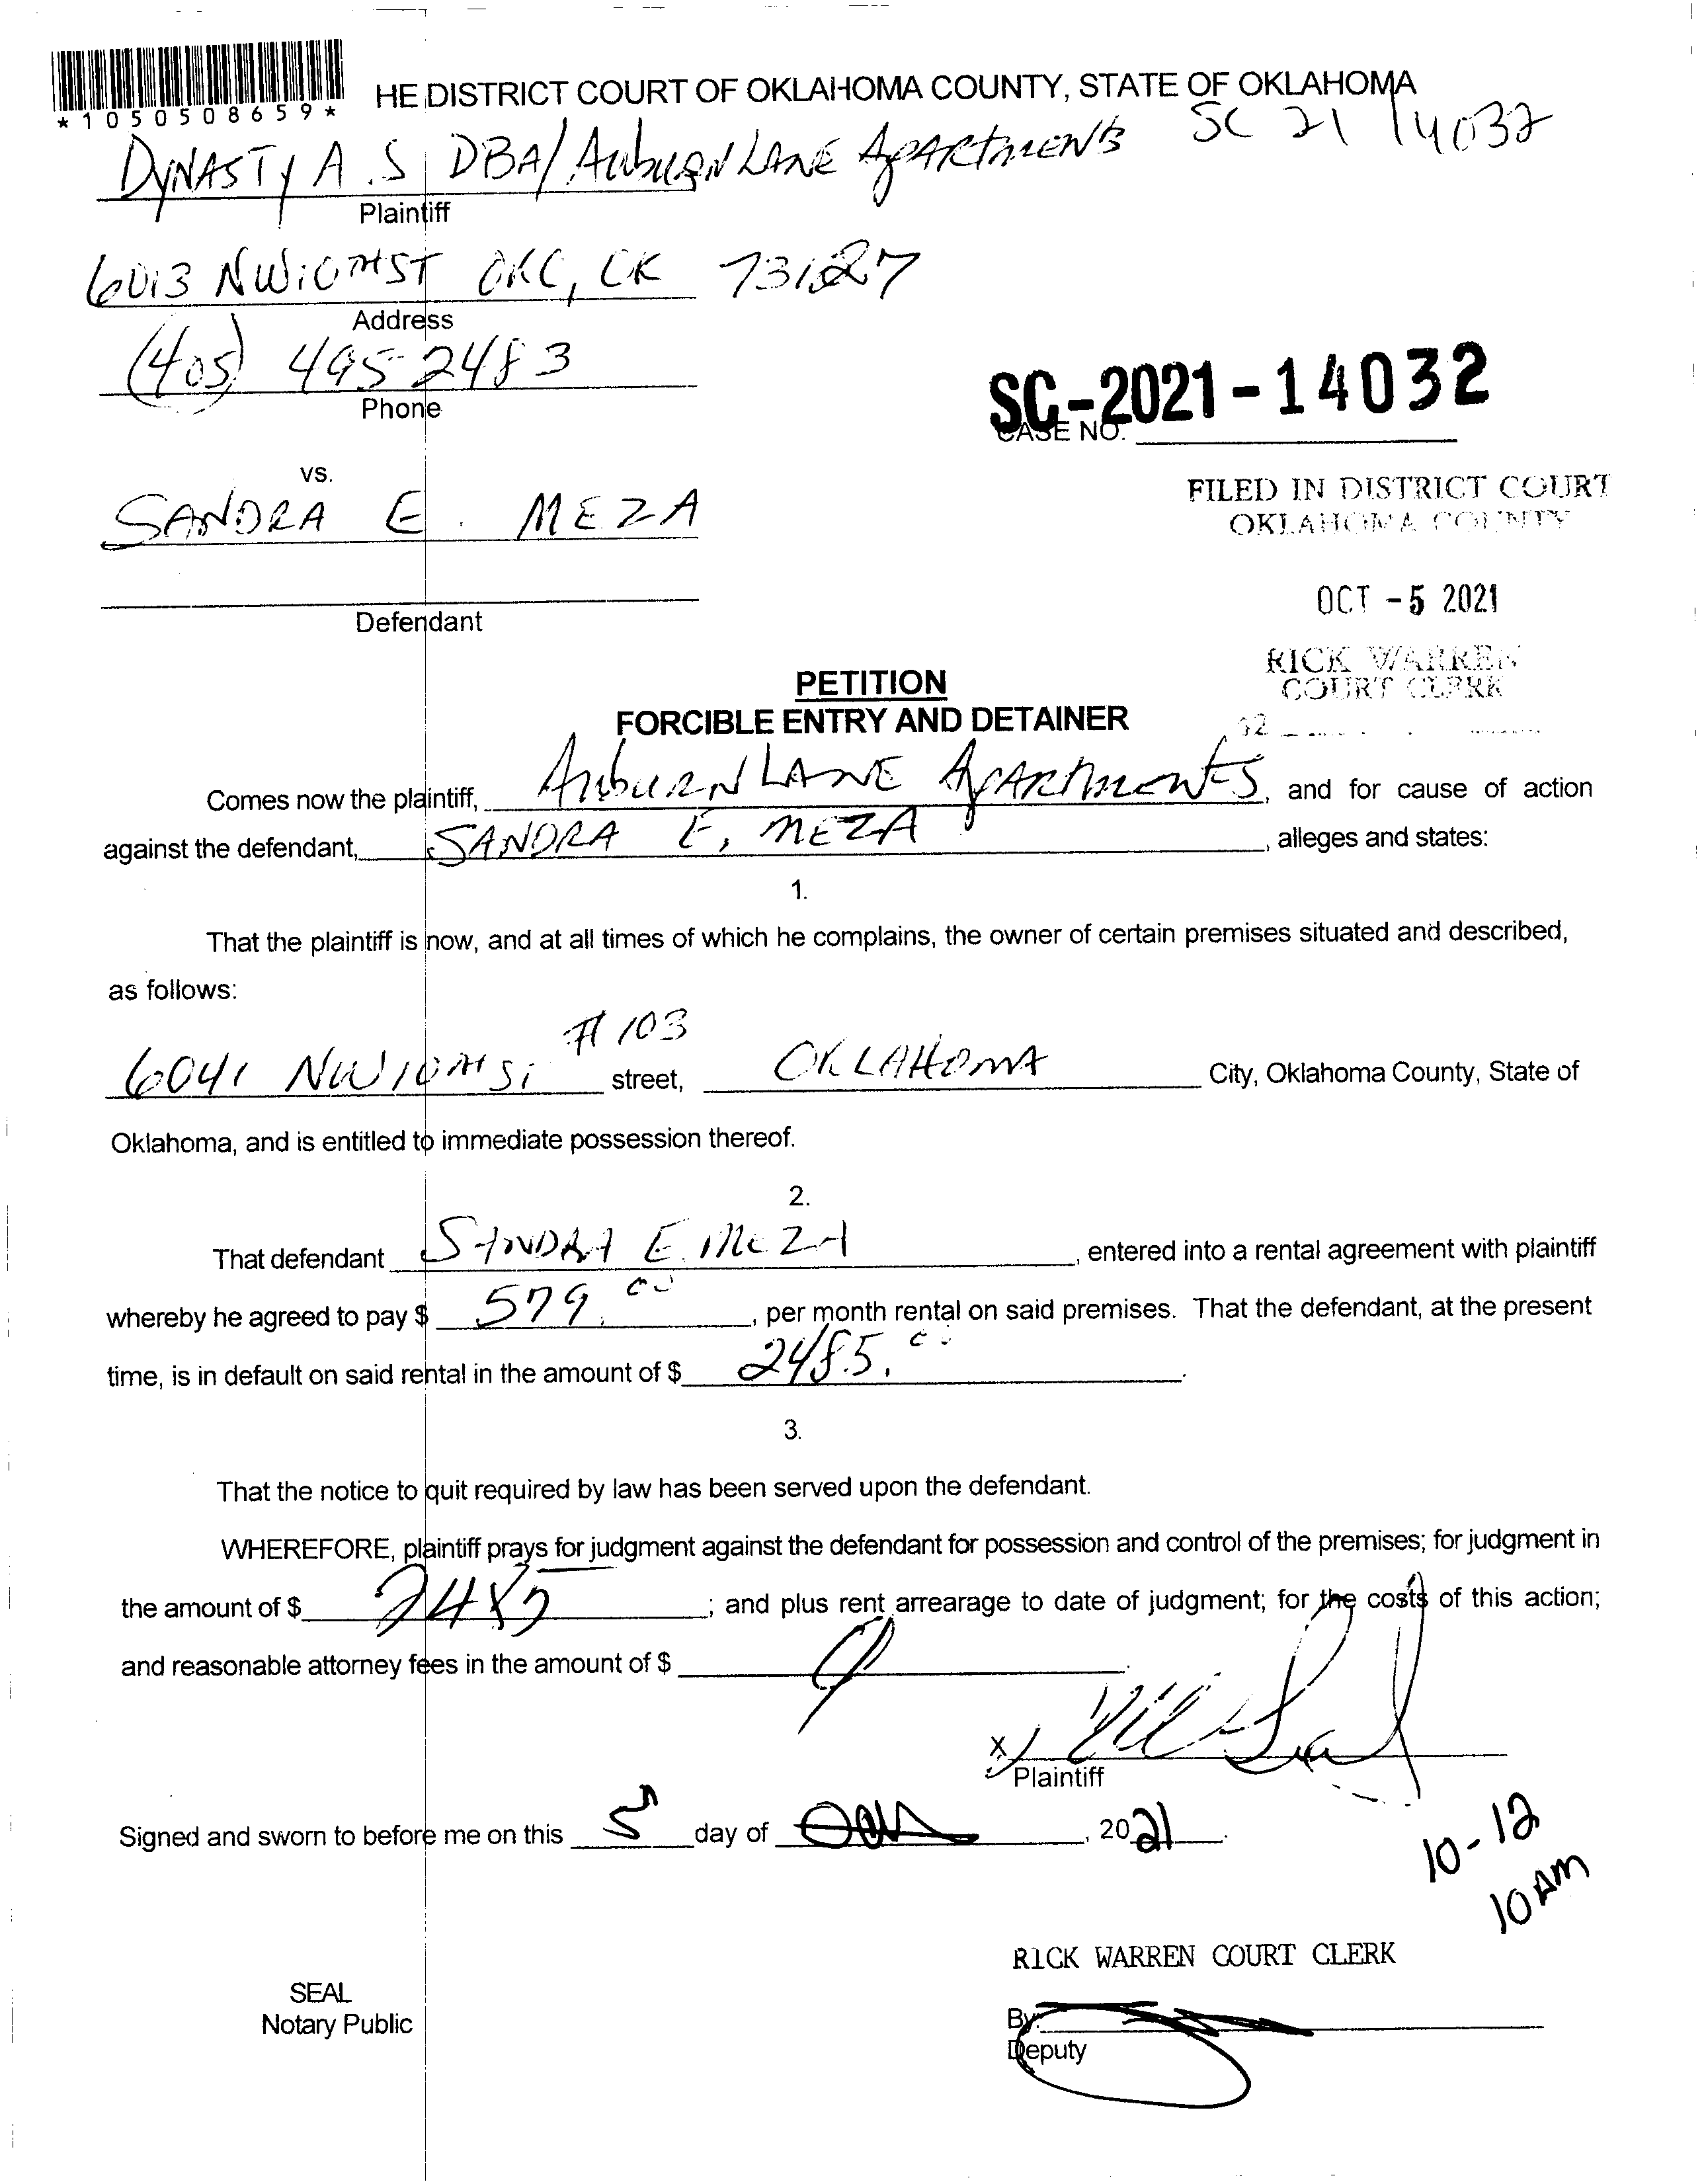 *1050508659*
HE DISTRICT COURT OF OKLAHOMA COUNTY, STATE OF OKLAHOMA
SC 21 14032
DYNASTY A.S DBA/ AUBURN LANE APARTMENTS
Plaintiff
6013 NW 10TH ST OKC, OK 73127
Address
(405) 495-2483
Phone
SC-2021-14032
CASE NO.
vs.
SANDRA E. MEZA
FILED IN DISTRICT COURT
OKLAHOMA COUNTY
OCT -5 2021
Defendant
RICK WARREN
COURT CLERK
PETITION
FORCIBLE ENTRY AND DETAINER
Comes now the plaintiff, AUBURN LANE APARTMENTS, and for cause of action
against the defendant, SANDRA E. MEZA, alleges and states:
1.
That the plaintiff is now, and at all times of which he complains, the owner of certain premises situated and described,
as follows:
6041 NW 10TH ST #103 street, OKLAHOMA City, Oklahoma County, State of
Oklahoma, and is entitled to immediate possession thereof.
2.
That defendant SANDRA E. MEZA, entered into a rental agreement with plaintiff
whereby he agreed to pay $ 579.00, per month rental on said premises. That the defendant, at the present
time, is in default on said rental in the amount of $ 2485.00.
3.
That the notice to quit required by law has been served upon the defendant.
WHEREFORE, plaintiff prays for judgment against the defendant for possession and control of the premises; for judgment in
the amount of $ 2485; and plus rent arrearage to date of judgment; for the costs of this action;
and reasonable attorney fees in the amount of $
X
Plaintiff
Signed and sworn to before me on this 5 day of , 2021.
10-12
10AM
RICK WARREN COURT CLERK
SEAL
Notary Public
By:
Deputy